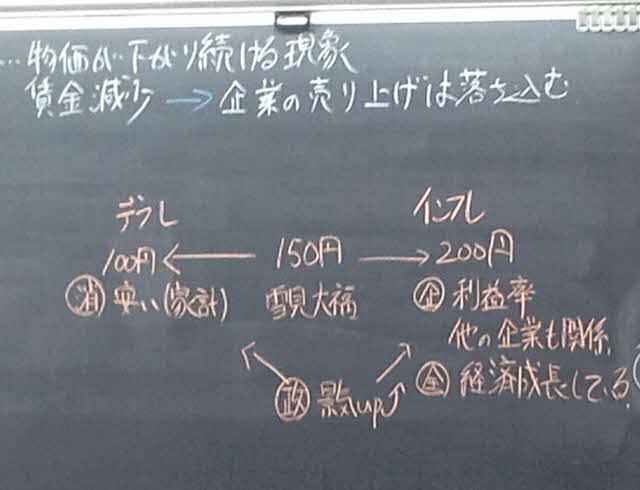 …物価が下がり続ける現象
賃金減少 → 企業の売り上げは落ち込む
デフレ
インフレ
100円 ← 150円 → 200円
消 安い(家計)
雪見大福
企 利益率
他の企業も関係
政 景気up↑
全 経済成長している